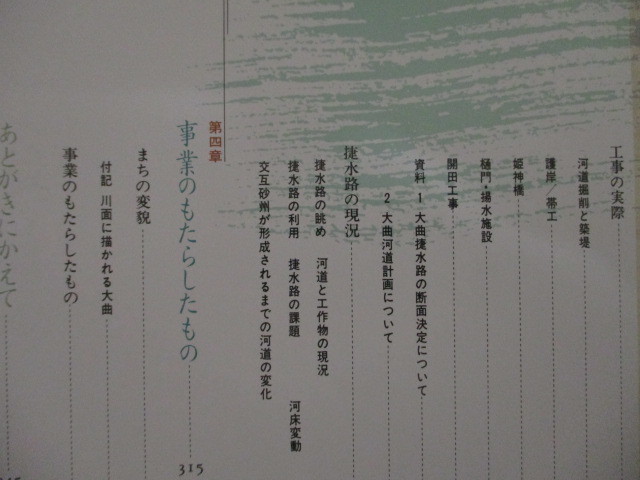 工事の実際
河道掘削と築堤
護岸/帯工
姫神橋
樋門・揚水施設
開田工事
資料 1 大曲捷水路の断面決定について
2 大曲河道計画について
捷水路の現況
捷水路の眺め 河道と工作物の現況
捷水路の利用 捷水路の課題 河床変動
交互砂州が形成されるまでの河道の変化
第四章
事業のもたらしたもの 315
まちの変貌
付記 川面に描かれる大曲
事業のもたらしたもの
あとがきにかえて